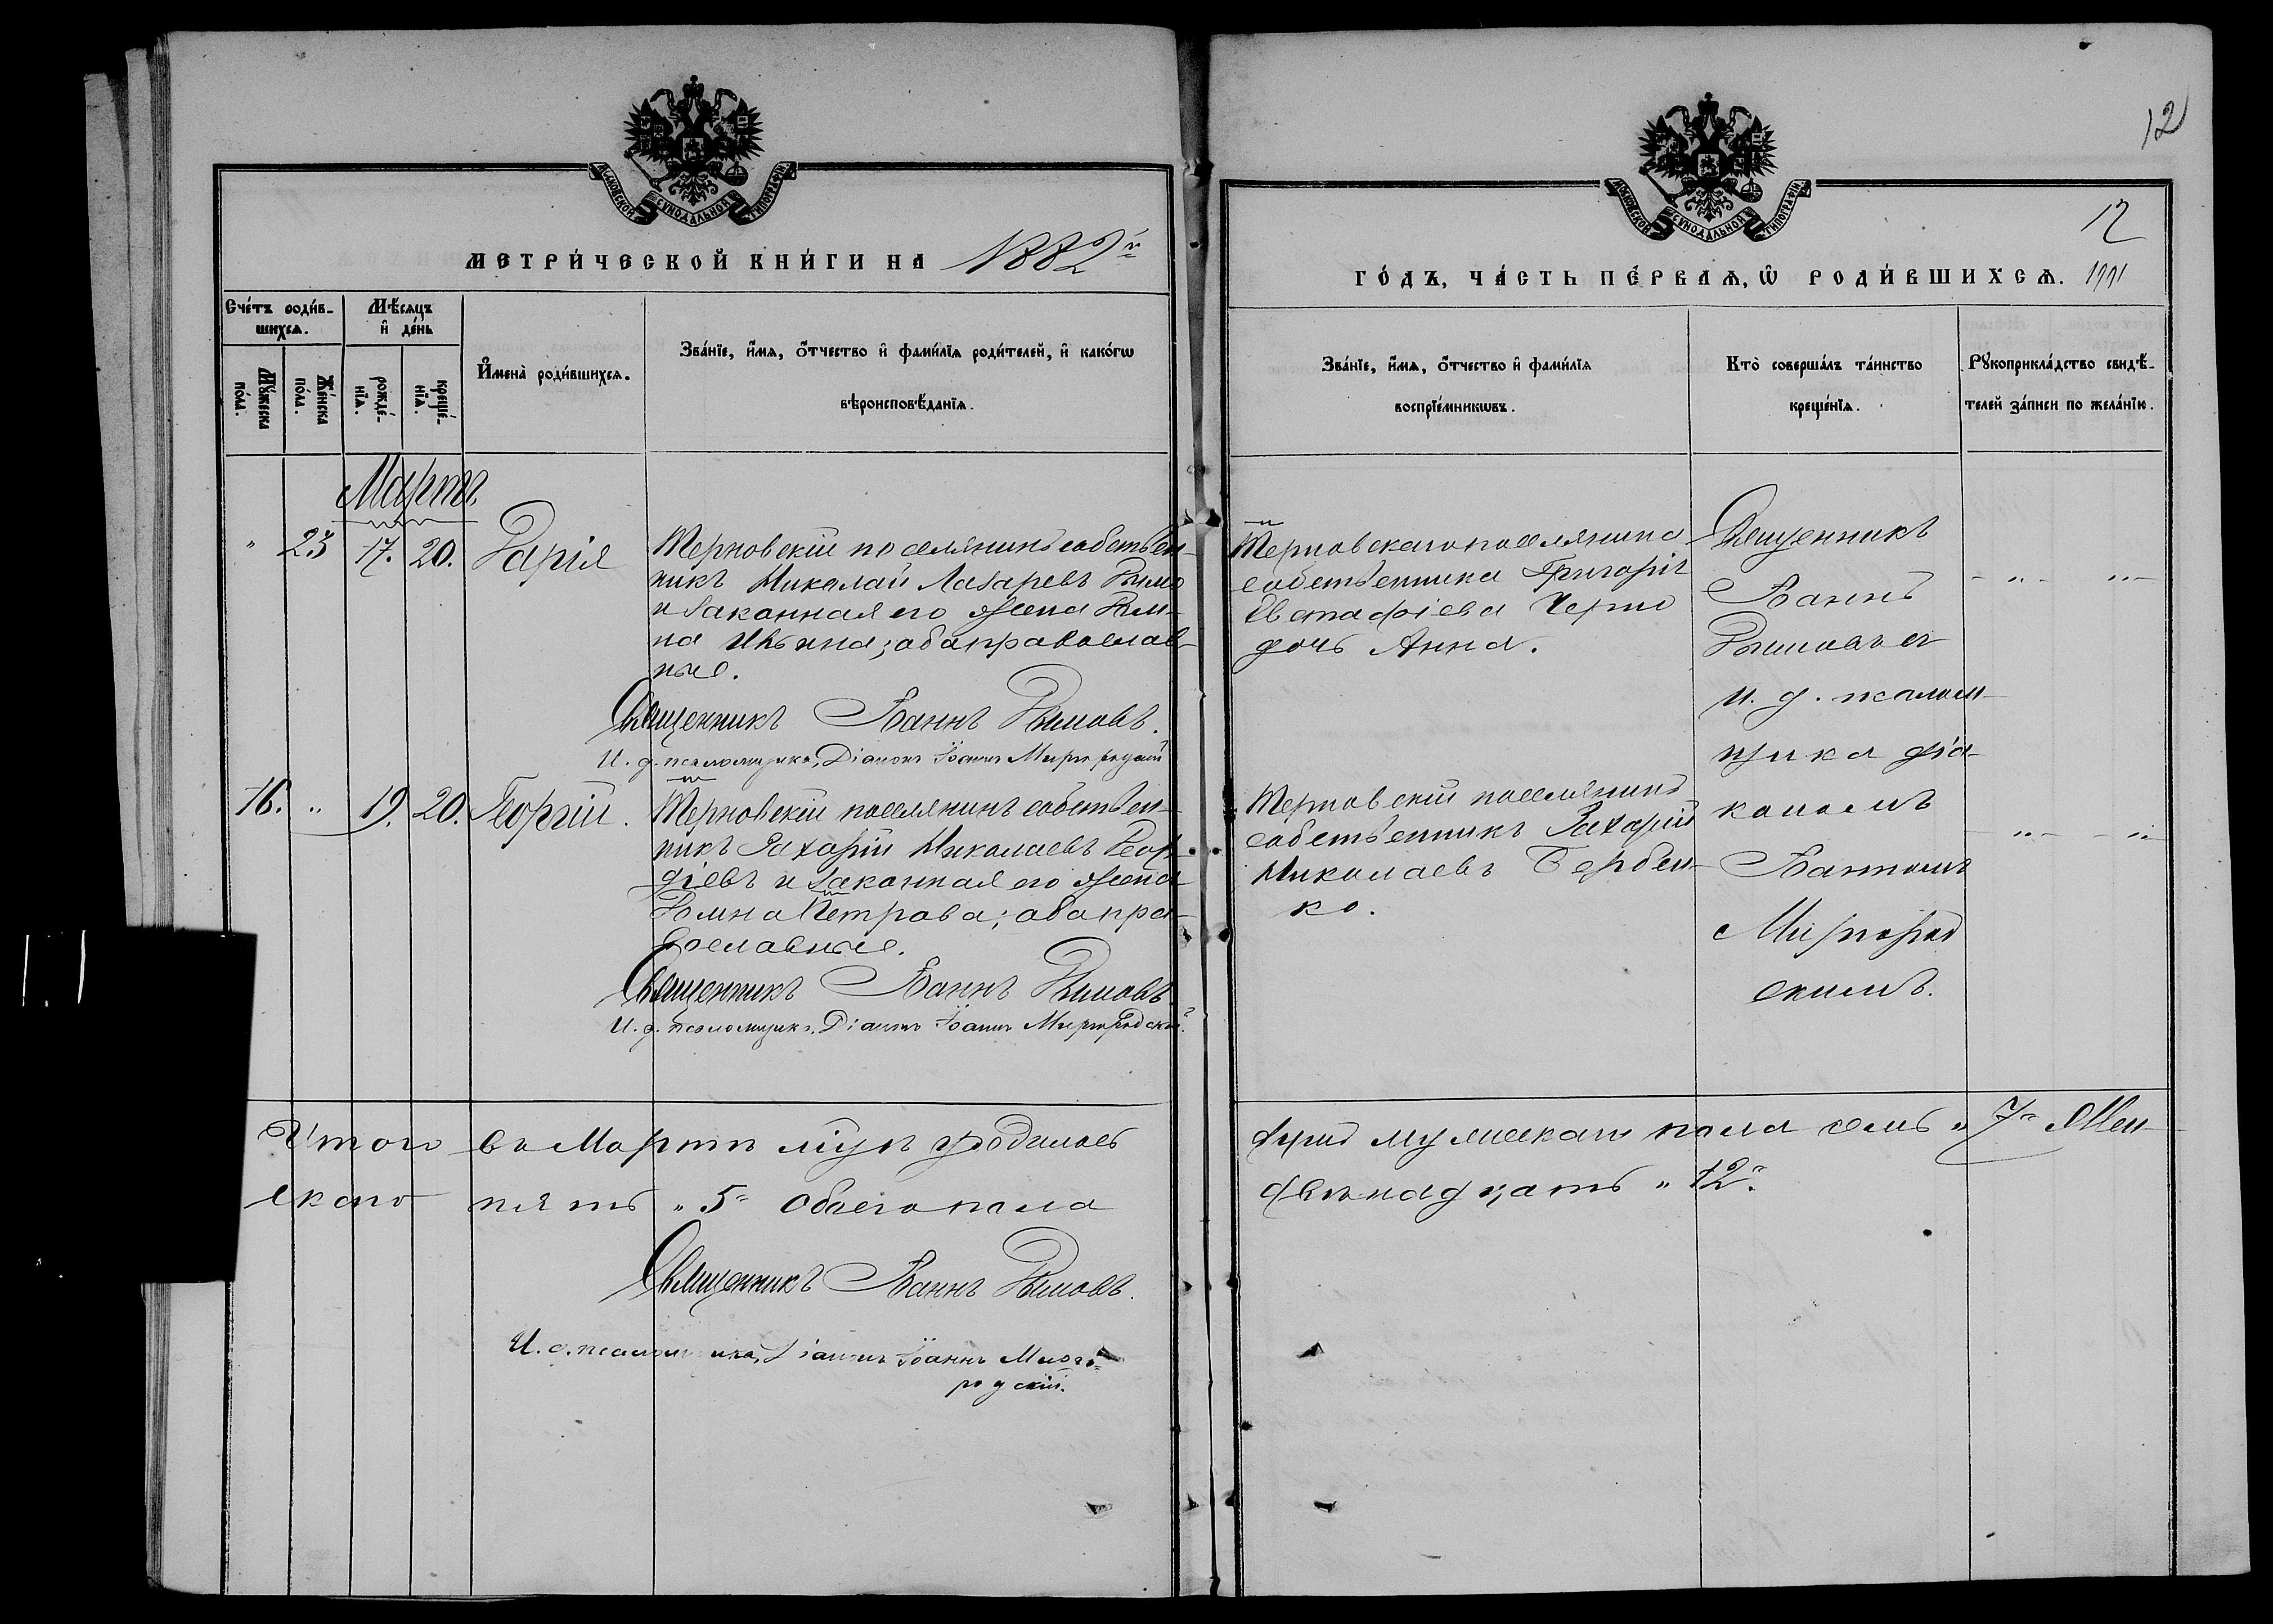 12
МОСКОВСКОЙ СУНОДАЛЬНОЙ ТИПОГРАФІИ
МОСКОВСКОЙ СУНОДАЛЬНОЙ ТИПОГРАФІИ
12
МЕТРИ́ЧЕСКОЙ КНИ́ГИ НА 1882й
ГО́ДЪ, ЧА́СТЬ ПЕ́РВАѦ, Ѡ РОДИ́ВШИХСѦ.
Сче́тъ роди́в-
шихсѧ.
Мѣ́сѧцъ
и҆ де́нь
Мꙋ́жеска
по́ла.
Же́нска
по́ла.
рожде́-
нїѧ.
креще́-
нїѧ.
И҆мена̀ роди́вшихсѧ.
Зва́нїе, и҆́мѧ, ѻ҆́тчество и҆ фами́лїѧ роди́телей, и҆ како́гѡ
вѣроисповѣ́данїѧ.
Зва́нїе, и҆́мѧ, ѻ҆́тчество и҆ фами́лїѧ
воспрїе́мникѡвъ.
Кто̀ соверша́лъ та́инство
креще́нїѧ.
Рꙋкоприкла́дство свидѣ́-
телей за́писи по жела́нїю.
Мартъ
" 23 17. 20. Дарія
Терновскій поселянинъ собствен-
никъ Николай Лазаревъ
и законная его жена Дом-
на Ильина; оба православ-
ные.
Священникъ Іоаннъ Дымовъ.
И. д. псаломщика, Діаконъ Іоаннъ Миргородскій
Терновскаго поселянина
собственника Григорія
Евстафіева Черно
дочь Анна.
Священникъ
Іоаннъ
Дымовъ съ
и. д. псалом-
щика діа-
кономъ
Іоанномъ
Миргород
скимъ.
16. " 19. 20. Георгій.
Терновскій поселянинъ собствен-
никъ Захарій Николаевъ
и законная его жена
Домна Петрова; оба пра-
вославные.
Священникъ Іоаннъ Дымовъ
И. д. псаломщика, Діаконъ Іоаннъ Миргородскій.
Терновскій поселянинъ
собственникъ Захарій
Николаевъ Бербен-
ко.
Итого въ Мартѣ м-цѣ родилось
душъ мужескаго пола семь " 7" Жен-
скаго пять " 5" обоего пола
двенадцать " 12".
Священникъ Іоаннъ Дымовъ.
И. д. псаломщика, Діаконъ Іоаннъ Мирго-
родскій.